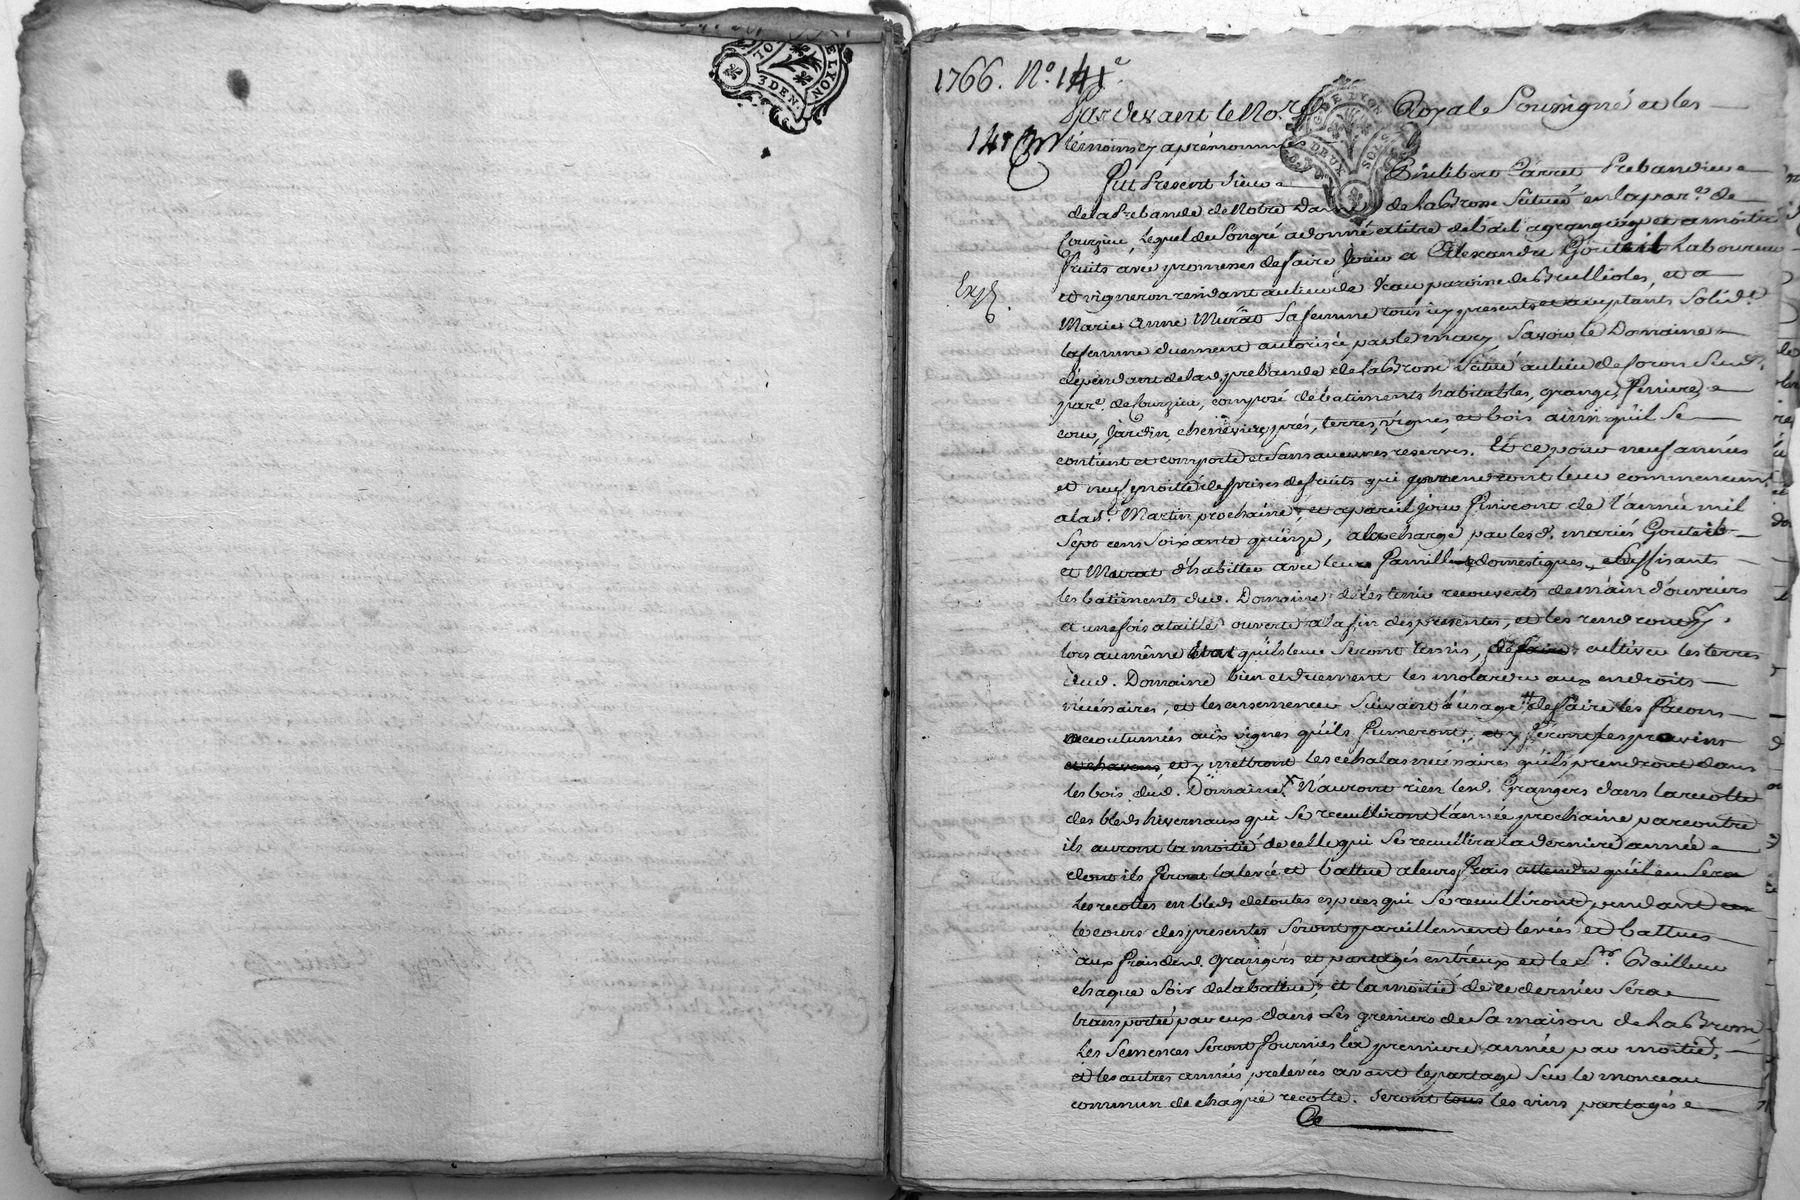 E LYON
3 DEN.
1766. N.º 141e
Pardevant le No.re Royal Soussigné et les
témoins cy aprés nommés
Fut Present Sieur Philibert Carret Prebandier
de la Prebande de Notre Dame de La Brosse Situé en la par.e de
Courzieu, Lequel de Son gré a donné a titre de bail a grangeage et a moitié
fruits avec promesses de faire Jouir a Alexandre Gouteil Laboureur
Exp.
et vigneron residant au lieu de paroisse de Brullioles, et a
Marie Anne Murat Sa femme tous icy presents et acceptants Solid.t
la femme duement autorisée par le mary, Savoir le Domaine
dépendant de lad. prebande de La Brosse Situé au lieu de Soud.
par.e de Courzieu, composé de batiments habitables, grange, feniere,
cour, Jardin, cheneviere, prés, terres, vignes, et bois ainsi qu'il Se
contient et comporte et Sans aucunes reserves. Et ce pour neuf années
et neuf prises de fruits qui prendront leur commencem.t
a la S.t Martin prochaine, et a pareil Jour finiront de l'année mil
Sept cens Soixante quinze, a la charge par les d. mariés Gouteil
et Murat d'habiter avec leur famille, domestiques, et
les batiments dud. Domaine, de les tenir recouverts de main d'ouvriers
et une fois a taille ouverte a la fin des presentes, et les rendront
lors au même état qu'ils leur Seront remis, cultiver les terres
dud. Domaine bien et duement les aux endroits
nécéssaires, et les ensemencer Suivant l'usage # de faire les facons
accoutumées aux vignes qu'ils fumeront, et y feront les provins
et y mettront les echalas nécéssaires qu'ils prendront dans
les bois dud. Domaine X N'auront rien lesd. Grangers dans la recolte
des bleds hivernaux qui Se recuilliront l'année prochaine par contre
ils auront la moitié de celle qui Se recuillira la derniere année
dont ils feront la levée et battue a leurs frais attendu qu'il en Sera
Les recoltes en bleds de toutes especes qui Se recuilliront pendant
le cours des presentes Seront pareillement levées et battues
aux frais desd. Grangers et partagés entr'eux et le S.r Bailleur
chaque Soir de la battue, et la moitié de ce dernier Sera
transportée par eux dans Les greniers de Sa maison de La Brosse
Les Semences Seront fournies la premiere année par moitié,
et les autres années prelevées avant le partage Sur le monceau
commun de chaque recolte. Seront tous les vins partagés